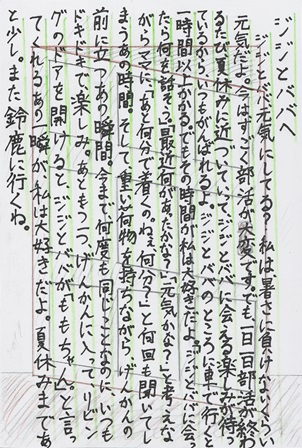 ジジとババへ
ジジとババ元気にしてる？私は暑さに負けないくらい
元気だよ。今はすごく部活が大変です。でも一日一日部活が終わ
るたび夏休みに近づいていて、ジジとババに会える楽しみが待
っているからいつもがんばれるよ。ジジとババのところに車で行く
一時間以上かかる。でもその時間が私は大好きだよ。ジジとババに会っ
たら何を話そう。「最近何があったかな？元気かな？」と考えな
がらママに、「あと何分で着くのねえ何分？」と何回も聞いてし
まうあの時間。そして重い荷物を持ちながら、げんかんの
前に立つあの瞬間。今まで何度も同じことなのに、いつも
ドキドキで楽しみ。あともう一つ、げんかんに入ってリビン
グのドアを開けると、ジジとババが「ももちゃん」と言っ
てくれるあの一瞬が私は大好きだよ。夏休みまであ
と少し。また鈴鹿に行くね。